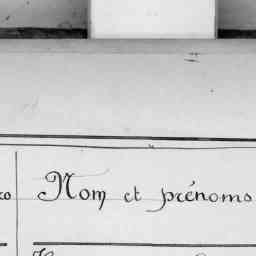 Nom et prénoms